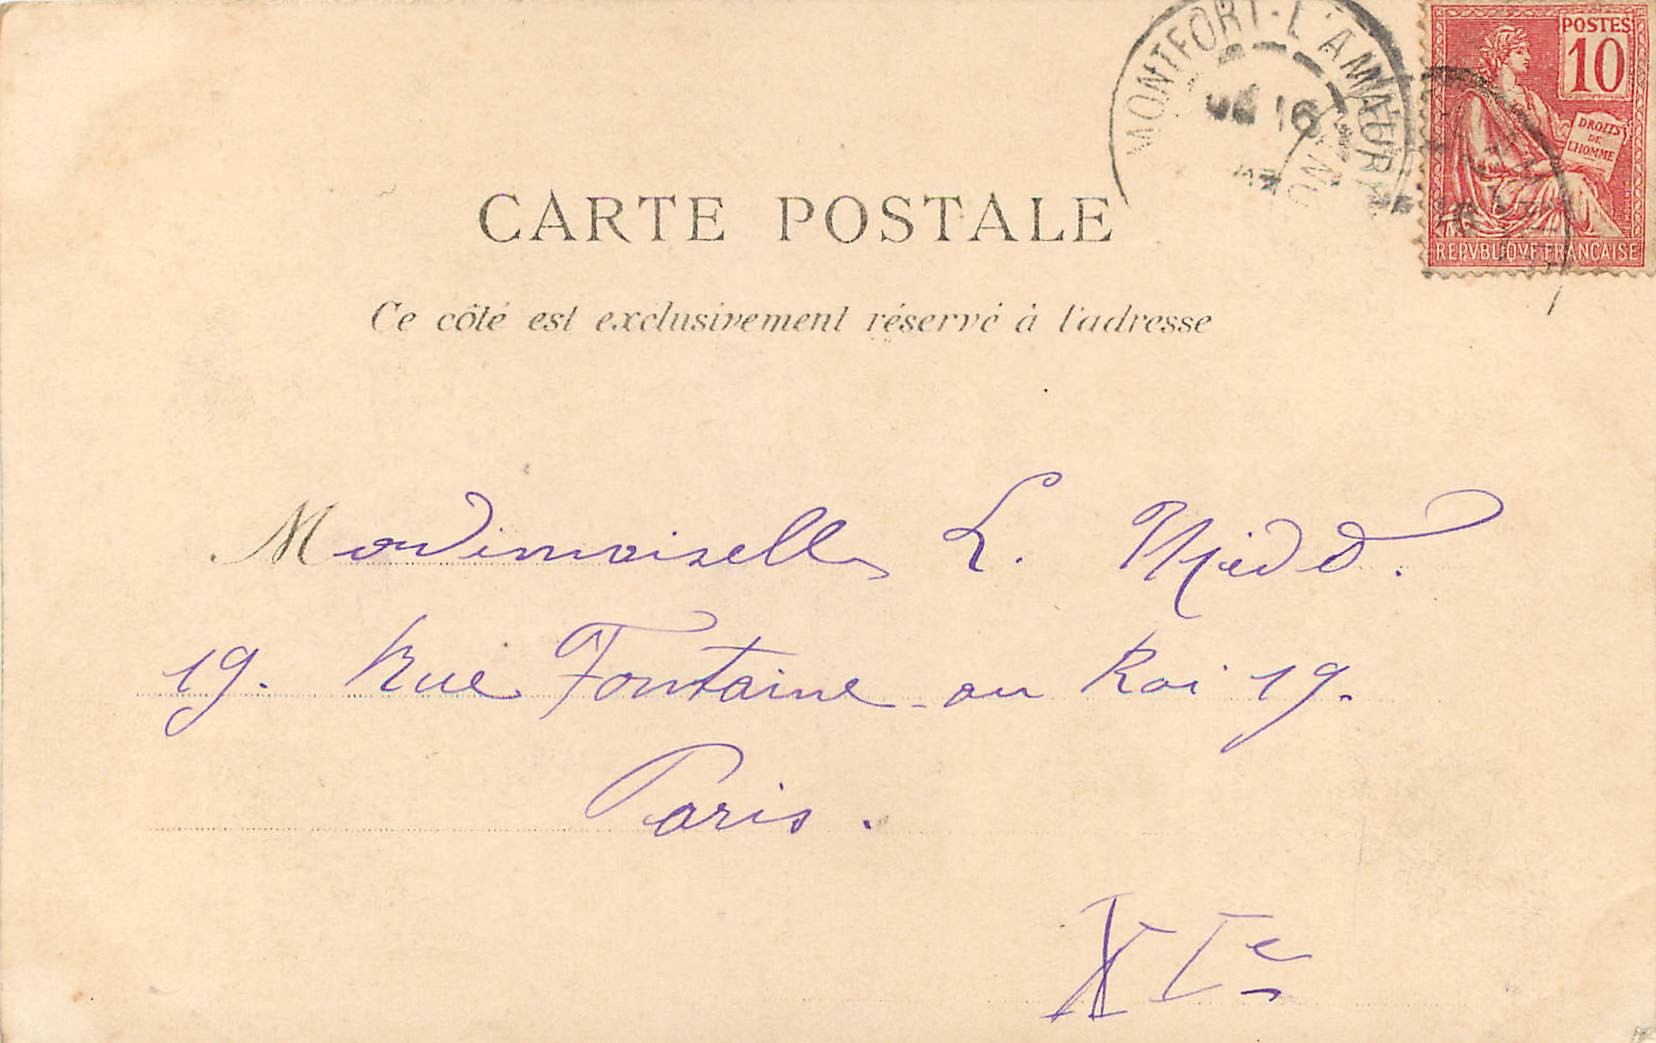 MONTFORT-L'AMAURY
16
POSTES
10
DROITS
DE
L'HOMME
REPVBLIQVE FRANÇAISE
CARTE POSTALE
Ce côté est exclusivement réservé à l'adresse
Mademoiselle L.
19. Rue Fontaine au Roi 19.
Paris.
XIe